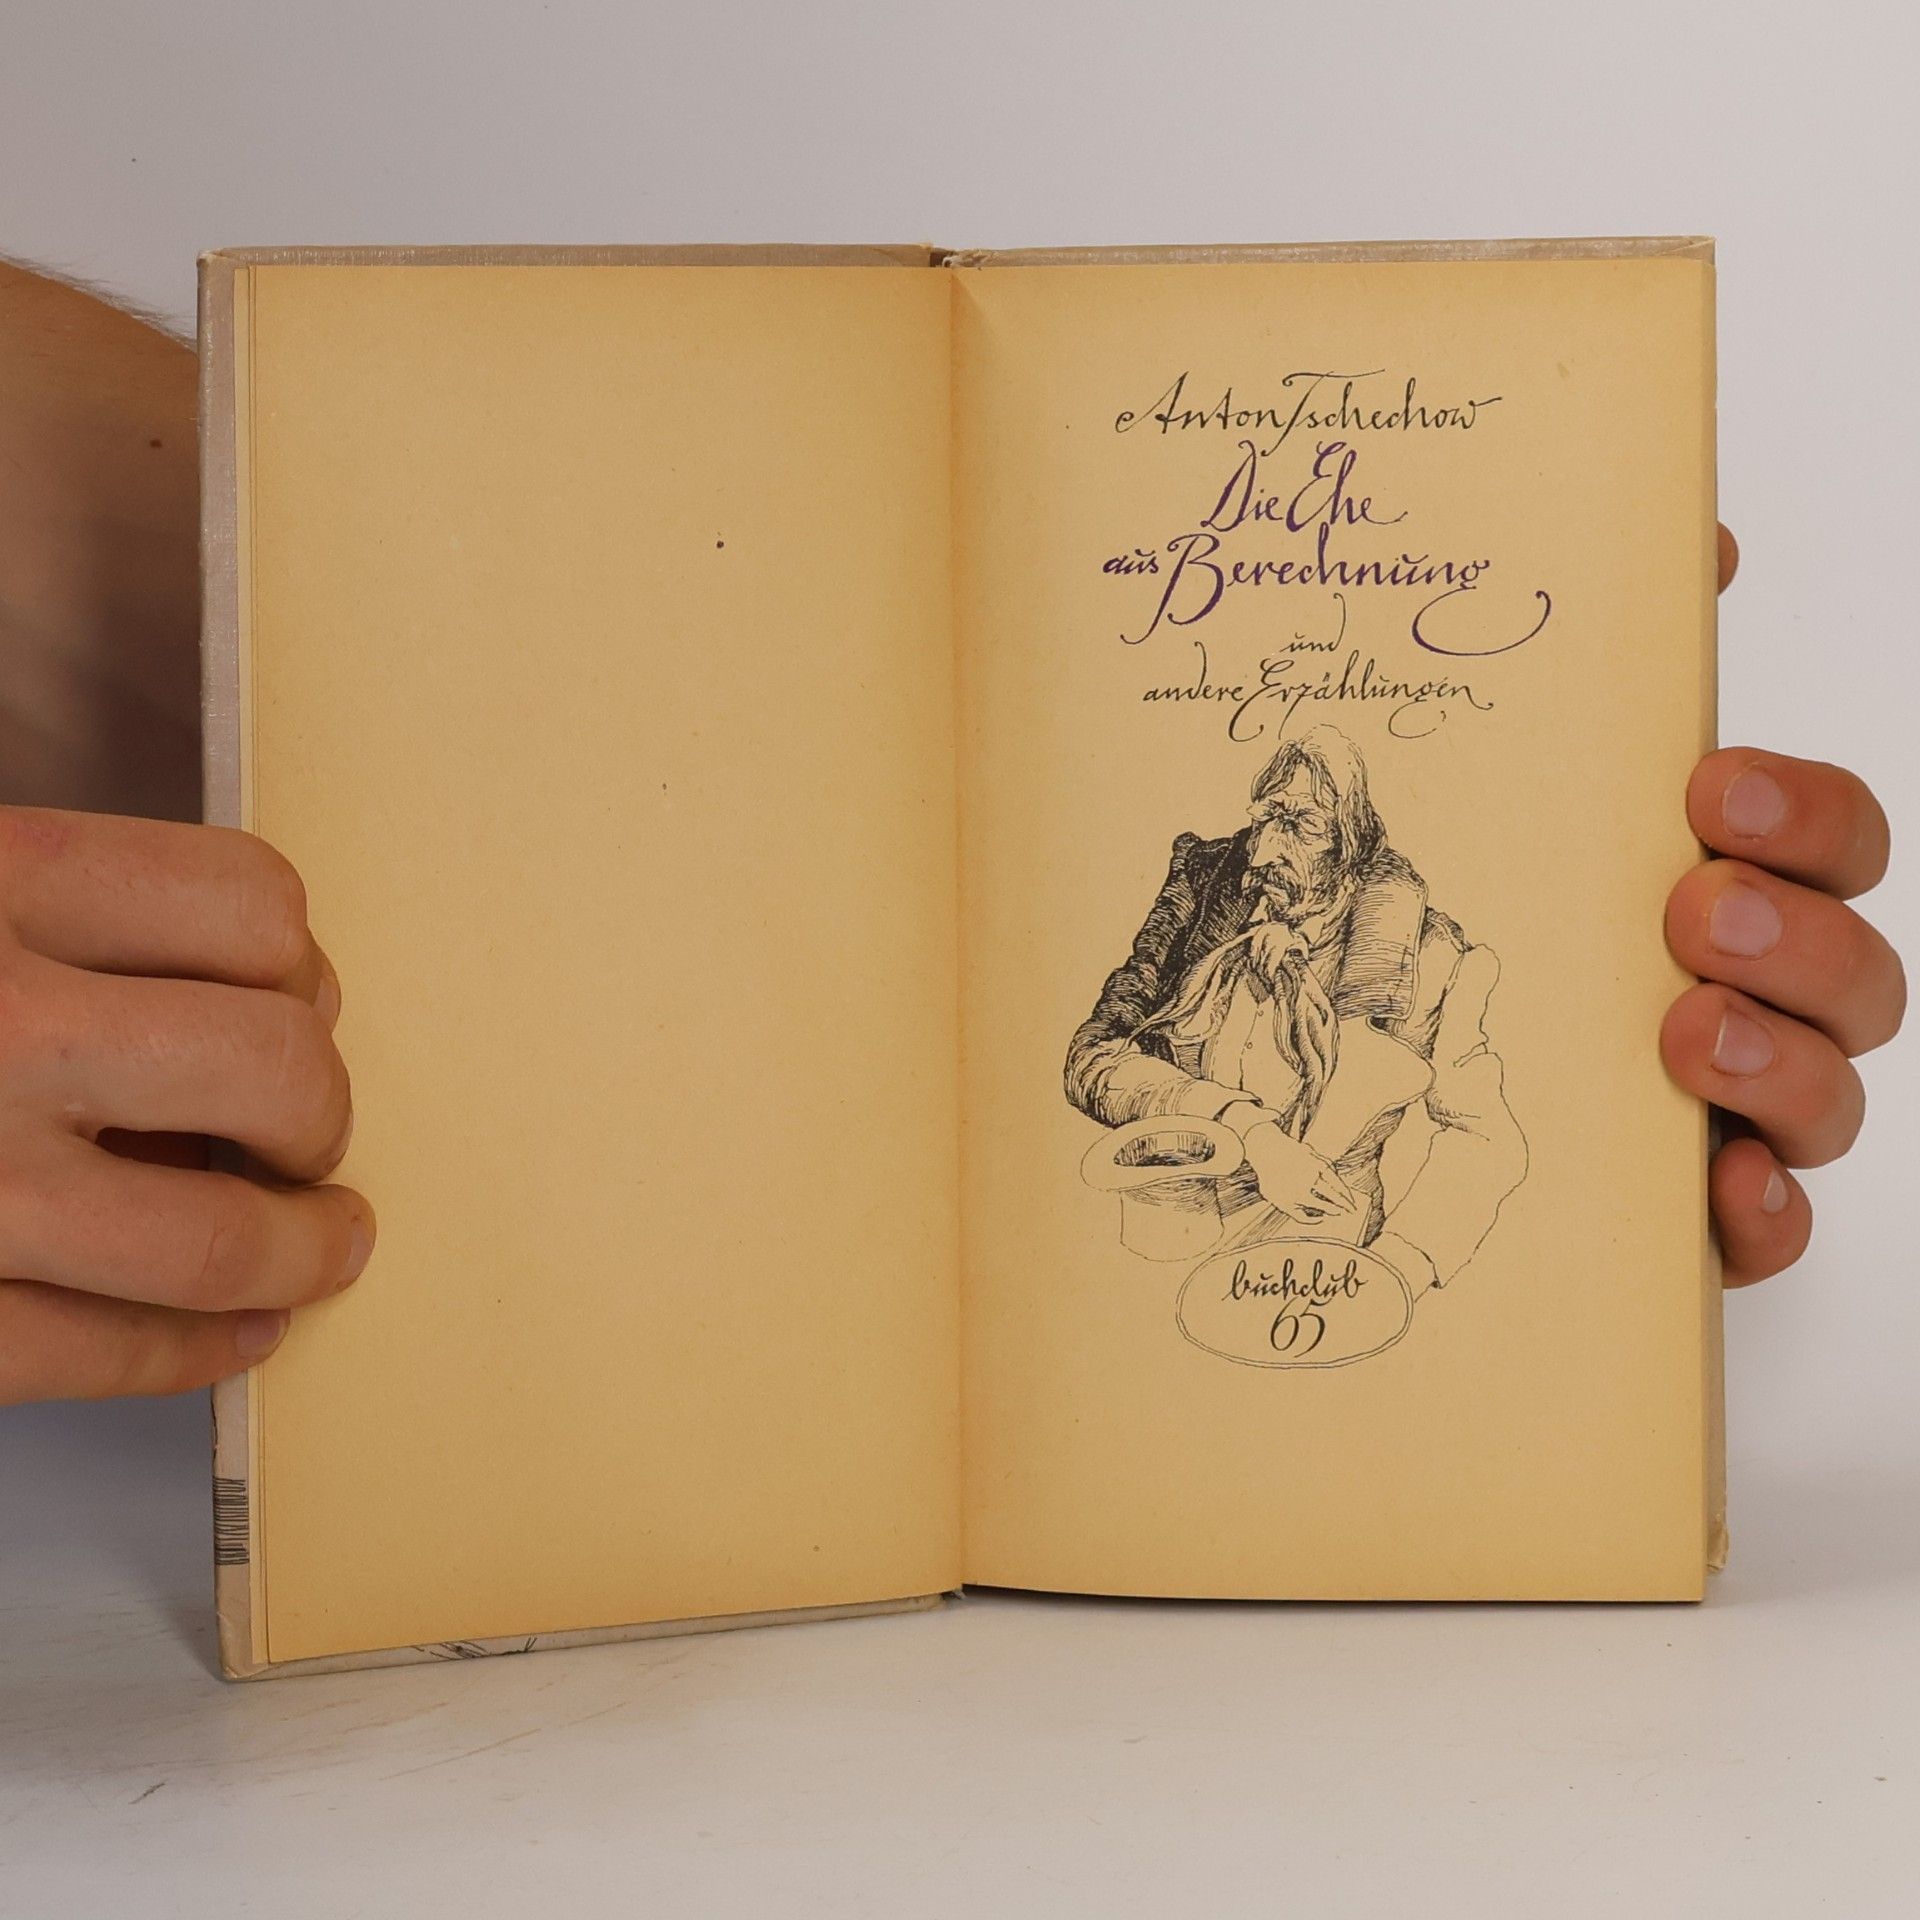 Anton Tschechow
Die Ehe
aus Berechnung
und
andere Erzählungen
buchclub
65